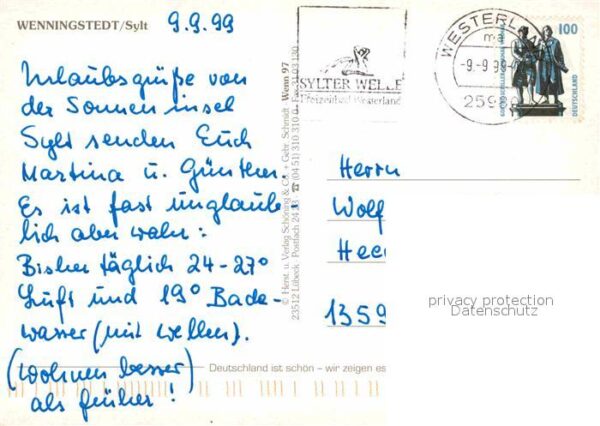 WENNINGSTEDT/Sylt 9.9.99
Urlaubsgrüße von
der Sonneninsel
Sylt senden Euch
Martina u. Günther.
Es ist fast unglaub-
lich aber wahr:
Bisher täglich 24-27°
Luft und 19° Bade-
wasser (mit Wellen).
(Wohnen besser)
als früher!
SYLTER WELLE
Freizeitbad Westerland
WESTERLA
-9.-9.99-
259
100
DEUTSCHLAND
© Herst. u. Verlag Schöning & Co. + Gebr. Schmidt
Wenn 97
23512 Lübeck · Postfach 24
(04 51) 310 310
Herrn
Wolf
Hee
1359
privacy protection
Datenschutz
Deutschland ist schön – wir zeigen es